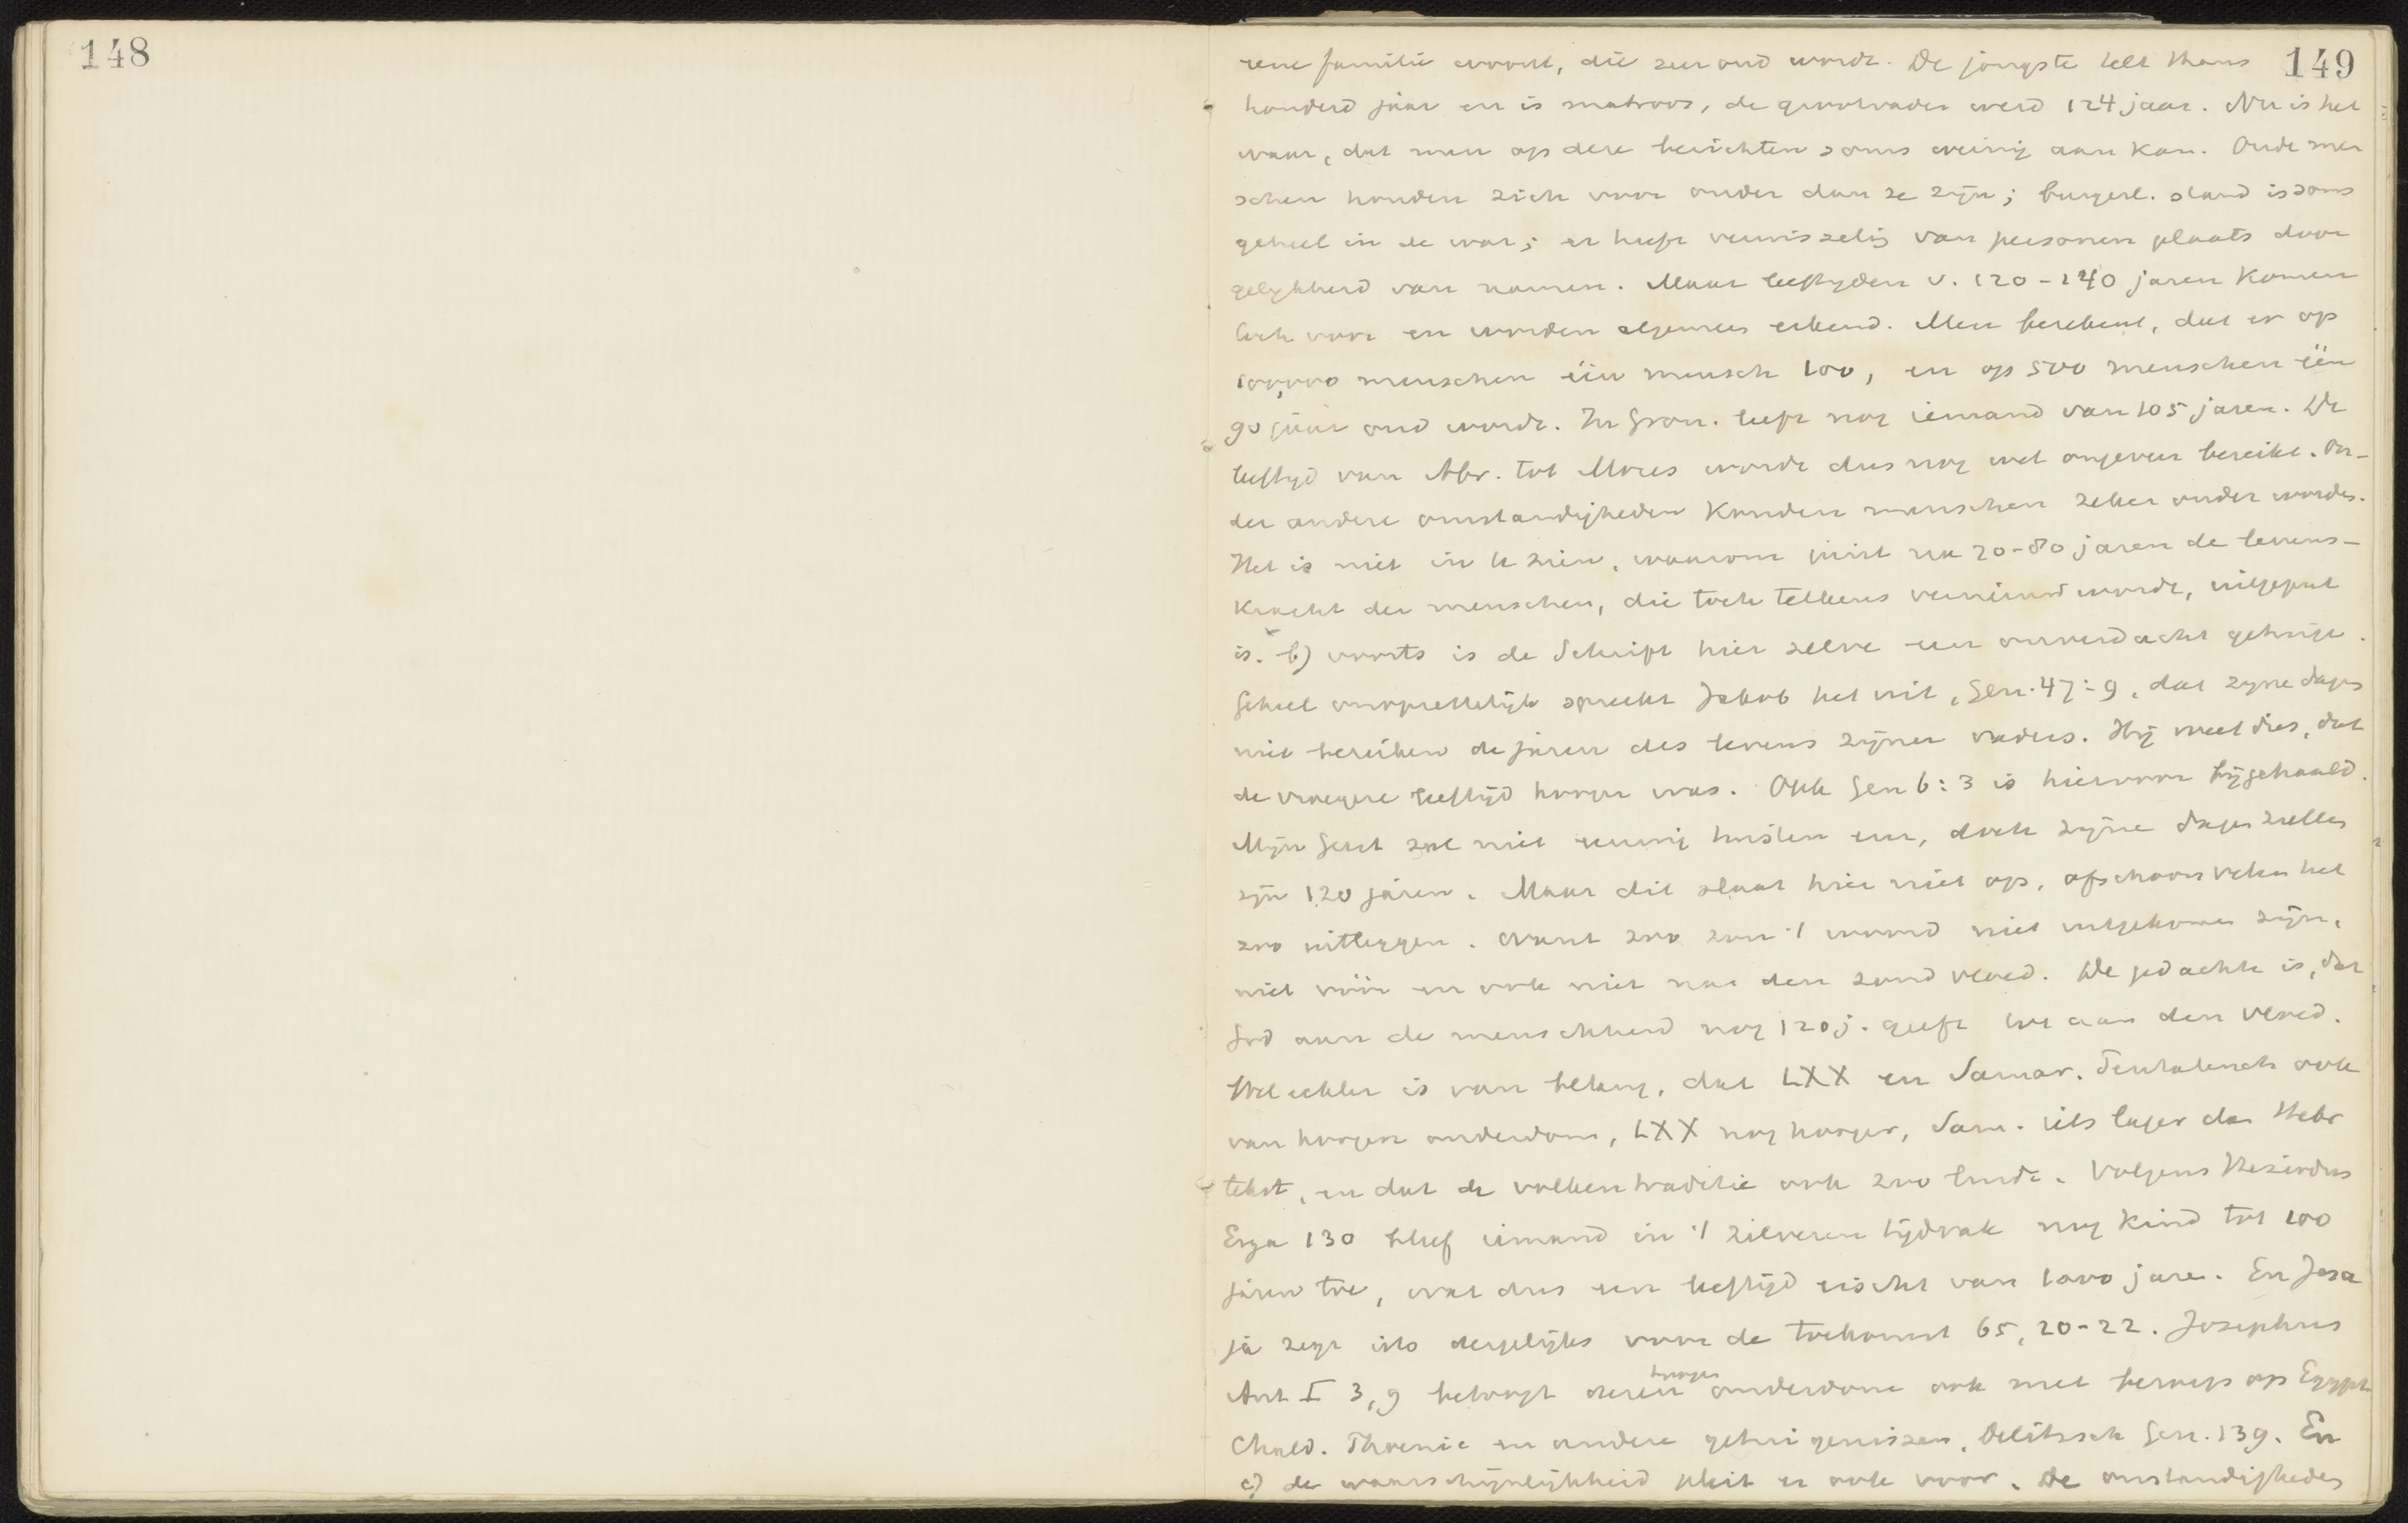 148
149
eene familie woont, die zeer oud wordt. De jongste telt thans
honderd jaar en is matroos, de grootvader werd 124 jaar. Nu is het
waar, dat men op deze berichten soms weinig aan kan. Oude men
schen houden zich voor ouder dan ze zijn; burgerl. stand is soms
geheel in de war; er heeft verwisselig van personen plaats door
gelykheid van namen. Maar leeftyden v. 120-140 jaren komen
toch voor en worden algemeen erkend. Men berekent, dat er op
100,000 menschen één mensch 100, en op 500 menschen één
90 jaar oud wordt. In Gron. leeft nog iemand van 105 jaren. De
leeftyd van Abr. tot Mozes wordt dus nog wel ongeveer bereikt. On-
der andere omstandigheden konden menschen zeker ouder worden.
Het is niet in te zien, waarom juist na 70-80 jaren de levens-
kracht der menschen, die toch telkens vernieuwd wordt, uitgeput
is. b) voorts is de Schrift hier zelve een onverdacht getuige.
Geheel onopzettelijk spreekt Jakob het uit, Gen. 47:9, dat zyne dagen
niet bereiken de jaren des levens zijner vaders. Hij weet dus, dat
de vroegere leeftijd hooger was. Ook Gen 6:3 is hiervoor bijgehaald.
Mijn Geest zal niet eeuwig twisten enz, doch zijne dagen zullen
zijn 120 jaren. Maar dit slaat hier niet op, ofschoon velen het
zoo uitleggen. Want zoo zou 't woord niet uitgekomen zijn,
niet vóór en ook niet na den zondvloed. De gedachte is, dat
God aan de menschheid nog 120 j. geeft tot aan den vloed.
Wel echter is van belang, dat LXX en Samar. Pentateuch ook
van hoogen ouderdom, LXX nog hooger, Sam. iets lager dan Hebr
tekst, en dat de volkentraditie ook zoo luidt. Volgens Hesiodus
Erga 130 bleef iemand in 't zilveren tijdvak nog kind tot 100
jaren toe, wat dus een leeftijd eischt van 1000 jaren. En Jesa
ja zegt iets dergelijks voor de toekomst 65, 20-22. Josephus
Ant I 3,9 betoogt dezen hoogen ouderdom ook met beroep op Egypt
Chald. Phoenic en andere getuigenissen, Delitzsch Gen. 139. En
c) de waarschijnlijkheid pleit er ook voor. De omstandigheden